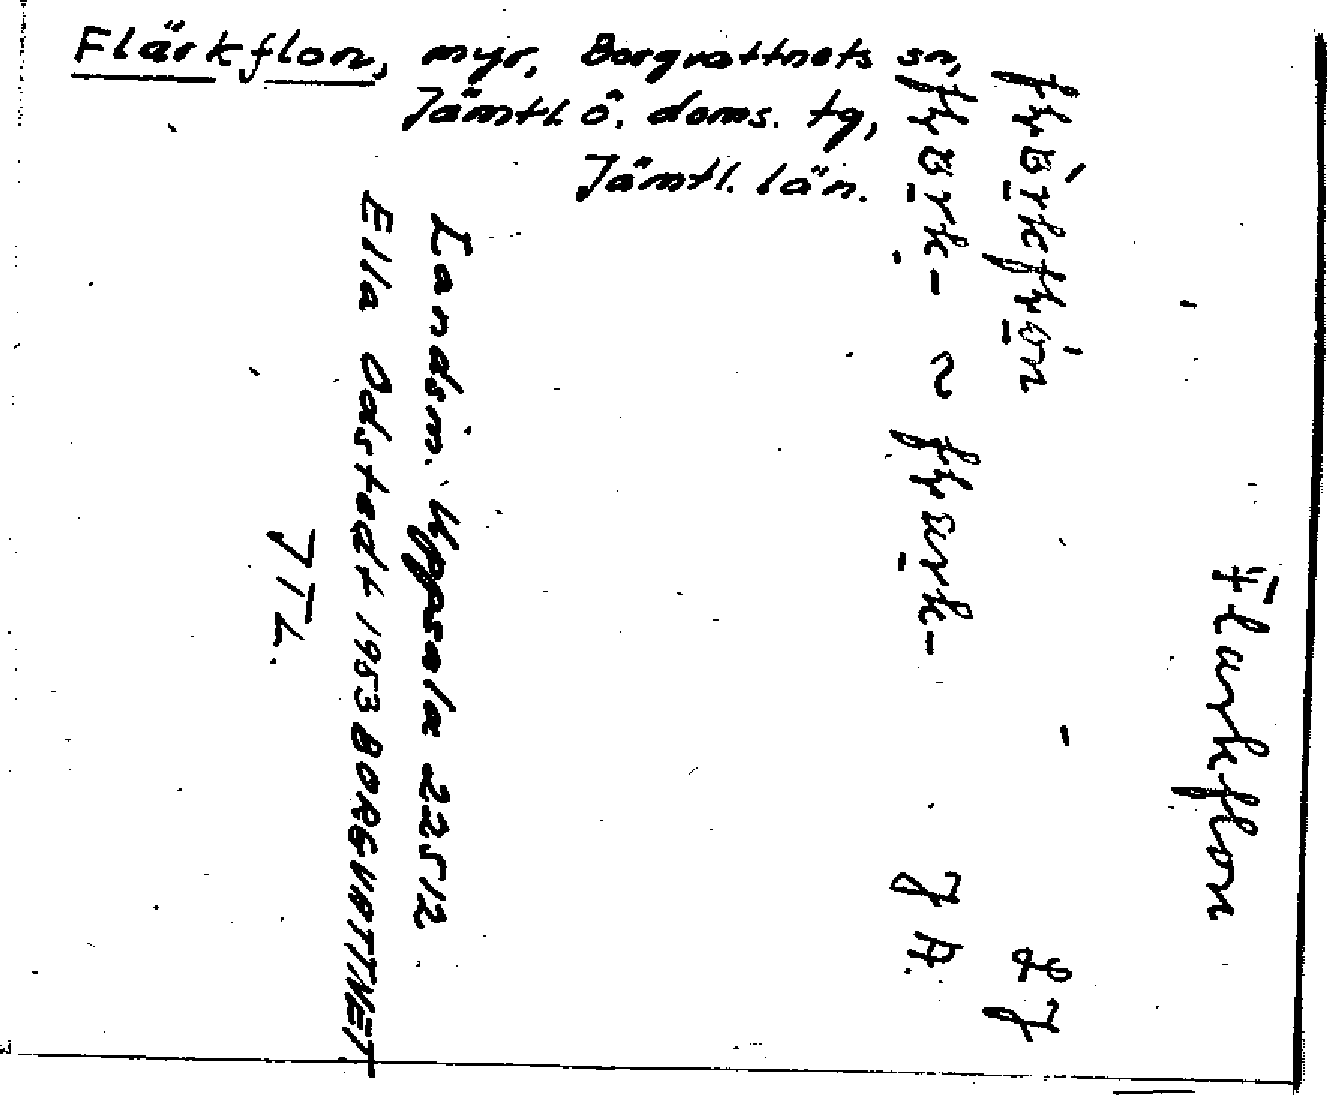 Flärkflon, myr, Borgvattnets sn,
Jämtl. ö. doms. tg,
Jämtl. län.
Flarkflon
LJ
JA.
Landsm. Uppsala 22512
Ella Odstedt 1953 BORGVATTNET
JTL.